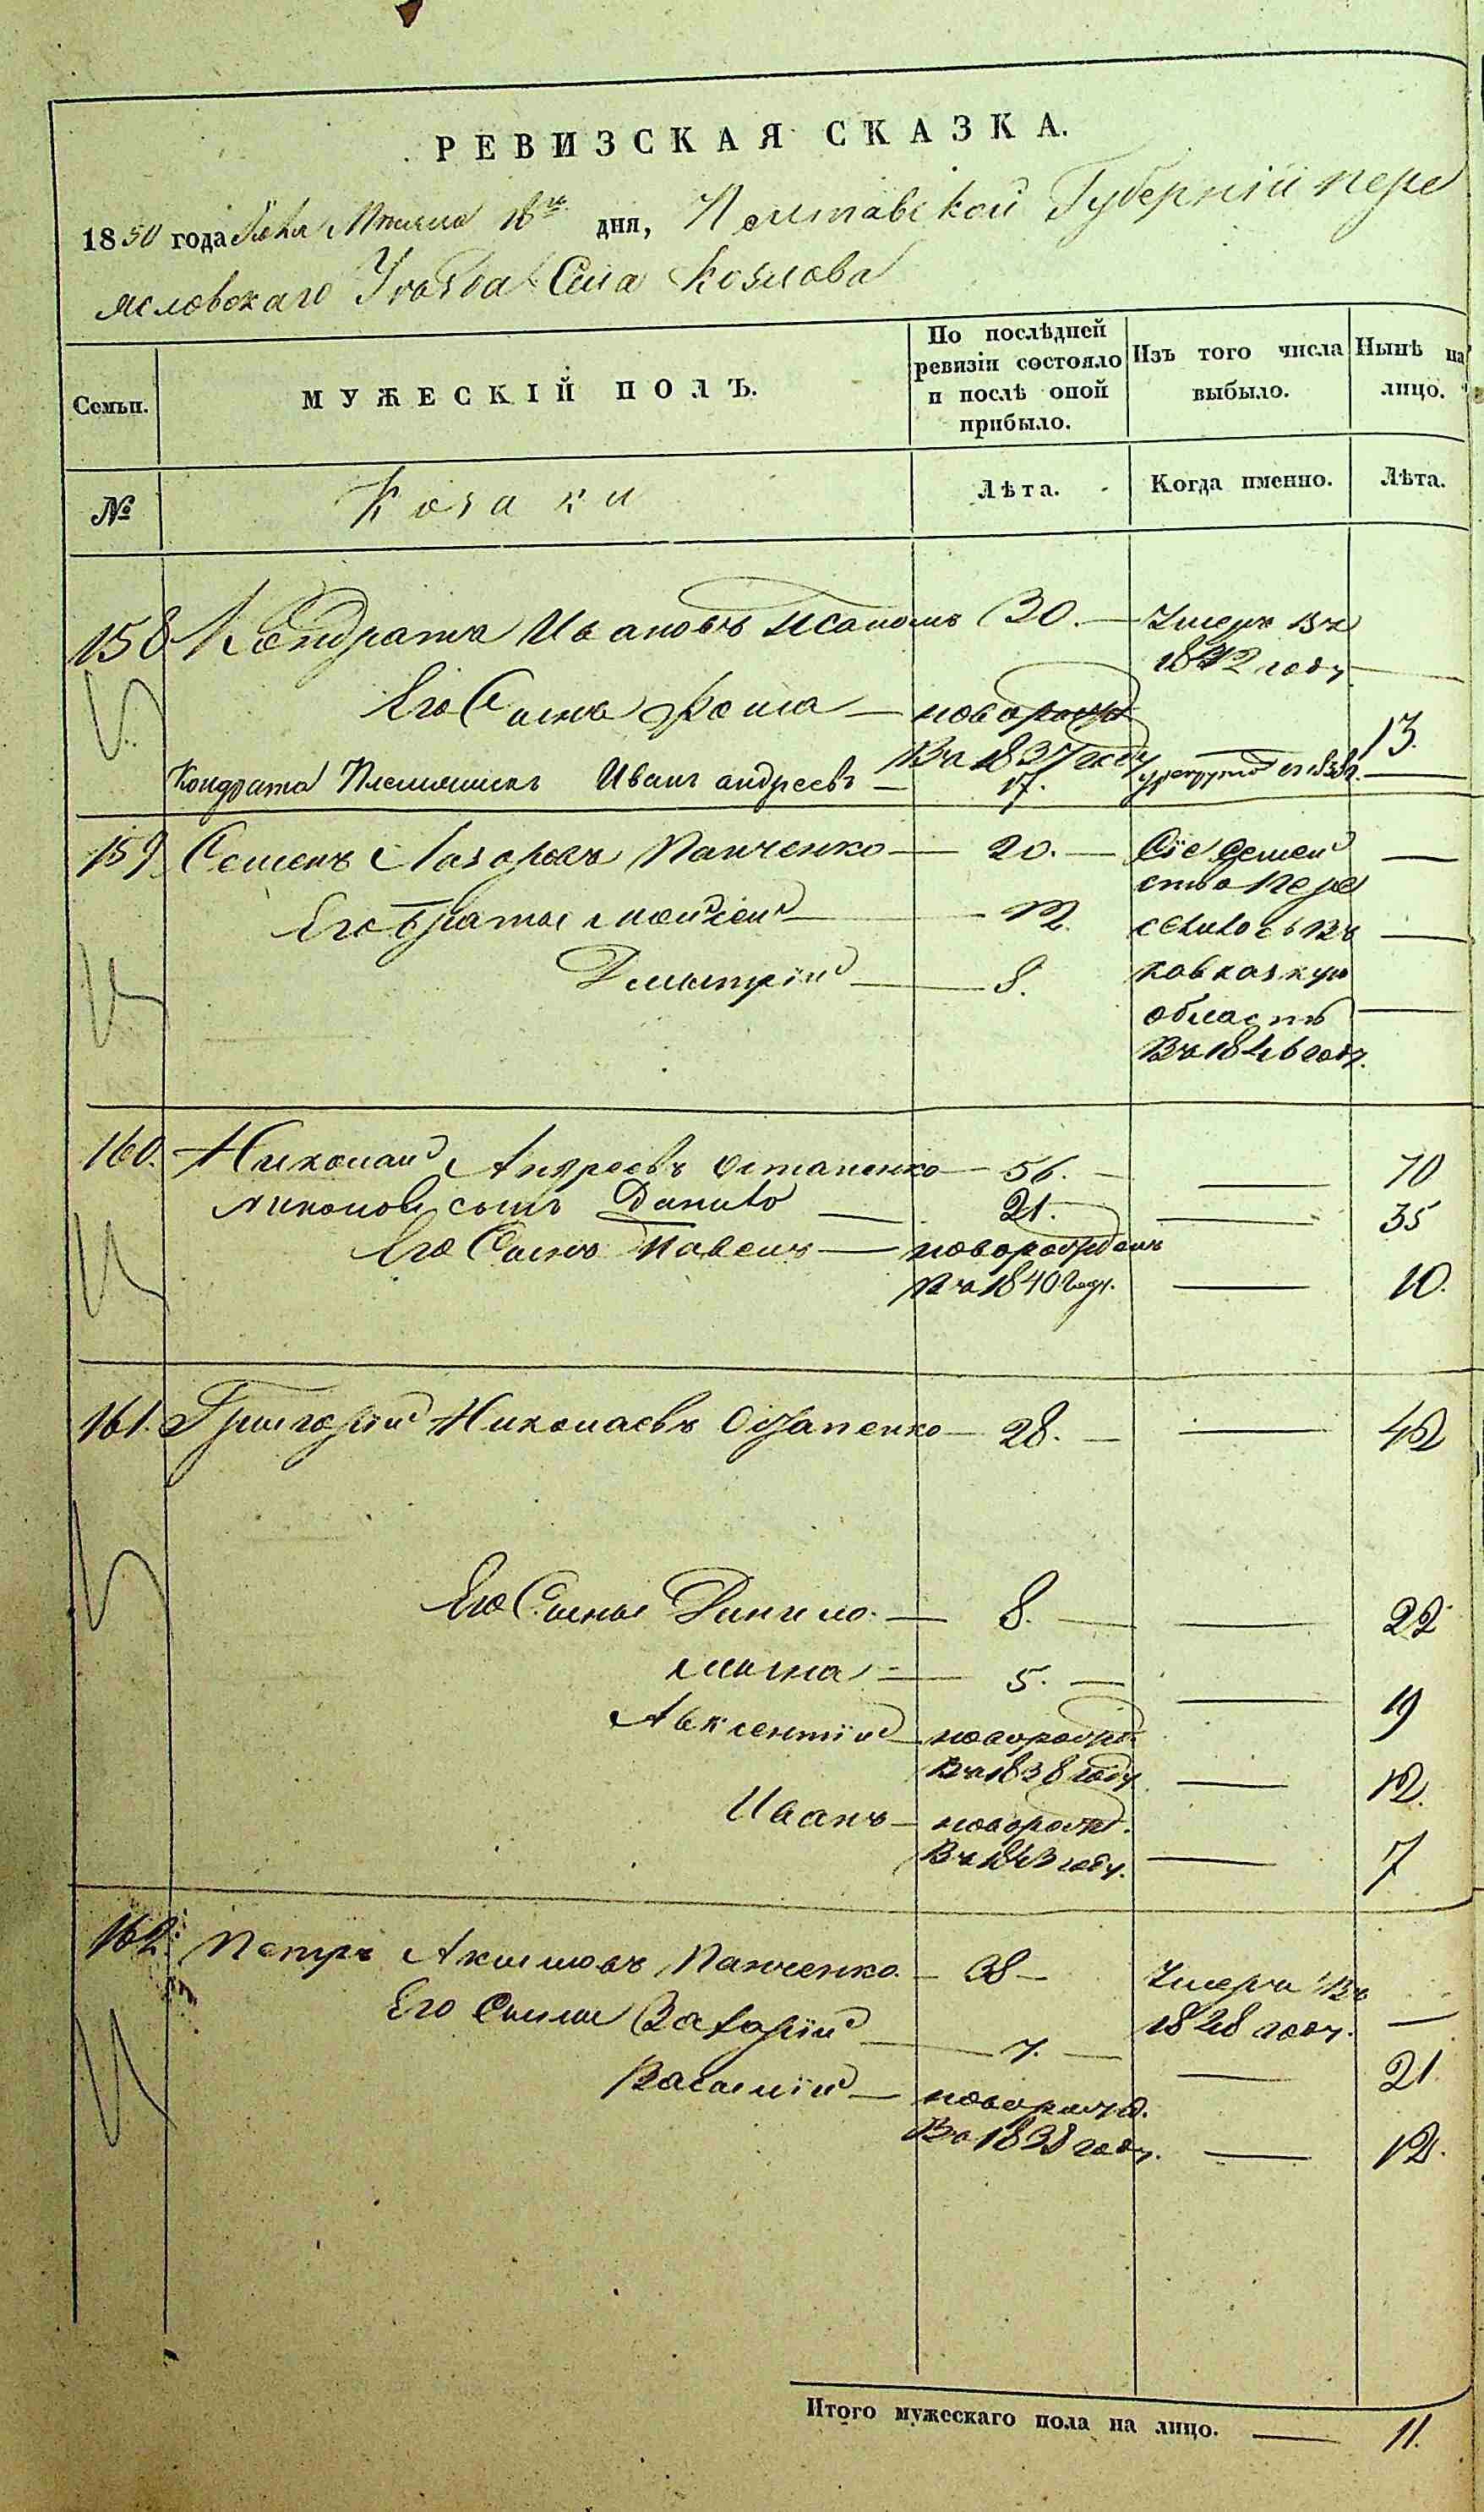 РЕВИЗСКАЯ СКАЗКА.
1850 года 18го дня, Полтавской Губерніи пере
яславскаго Уѣзда Села Козлова
Семьи.
МУЖЕСКІЙ ПОЛЪ.
По послѣдней ревизіи состояло и послѣ оной прибыло.
Изъ того числа выбыло.
Нынѣ на лицо.
№
Козаки
Лѣта.
Когда именно.
Лѣта.
158 Кондратъ Ивановъ 30. Умеръ въ
1842 году
Его Сынъ Фома новорожд
въ 1837 году 13.
Кондрата Племянникъ Иванъ андреевъ 17.
159 Семенъ Лазоревъ Панченко 20. Сіе Семей
ство Пере
Его братья Моисей 12. селилось въ
Дмытрій 8. кавказкую
область
въ 1846 году.
160. Николай Андреевъ Остапенко 56. 70
сынъ Данило 21. 35
Его Сынъ Павелъ новорожденъ
въ 1840 году. 10.
161. Григорій Николаевъ Остапенко 28. 42
Его Сыны Данило. 8. 22
5. 19
Авксентій новорожд.
въ 1838 году 12.
Иванъ новорожд.
въ 1843 году. 7
162. Петръ Акимовъ Панченко 38 Умеръ въ
1848 году.
Его Сыны Захарій 7. 21.
Василій новорожд.
въ 1838 году. 12.
Итого мужескаго пола на лицо. 11.